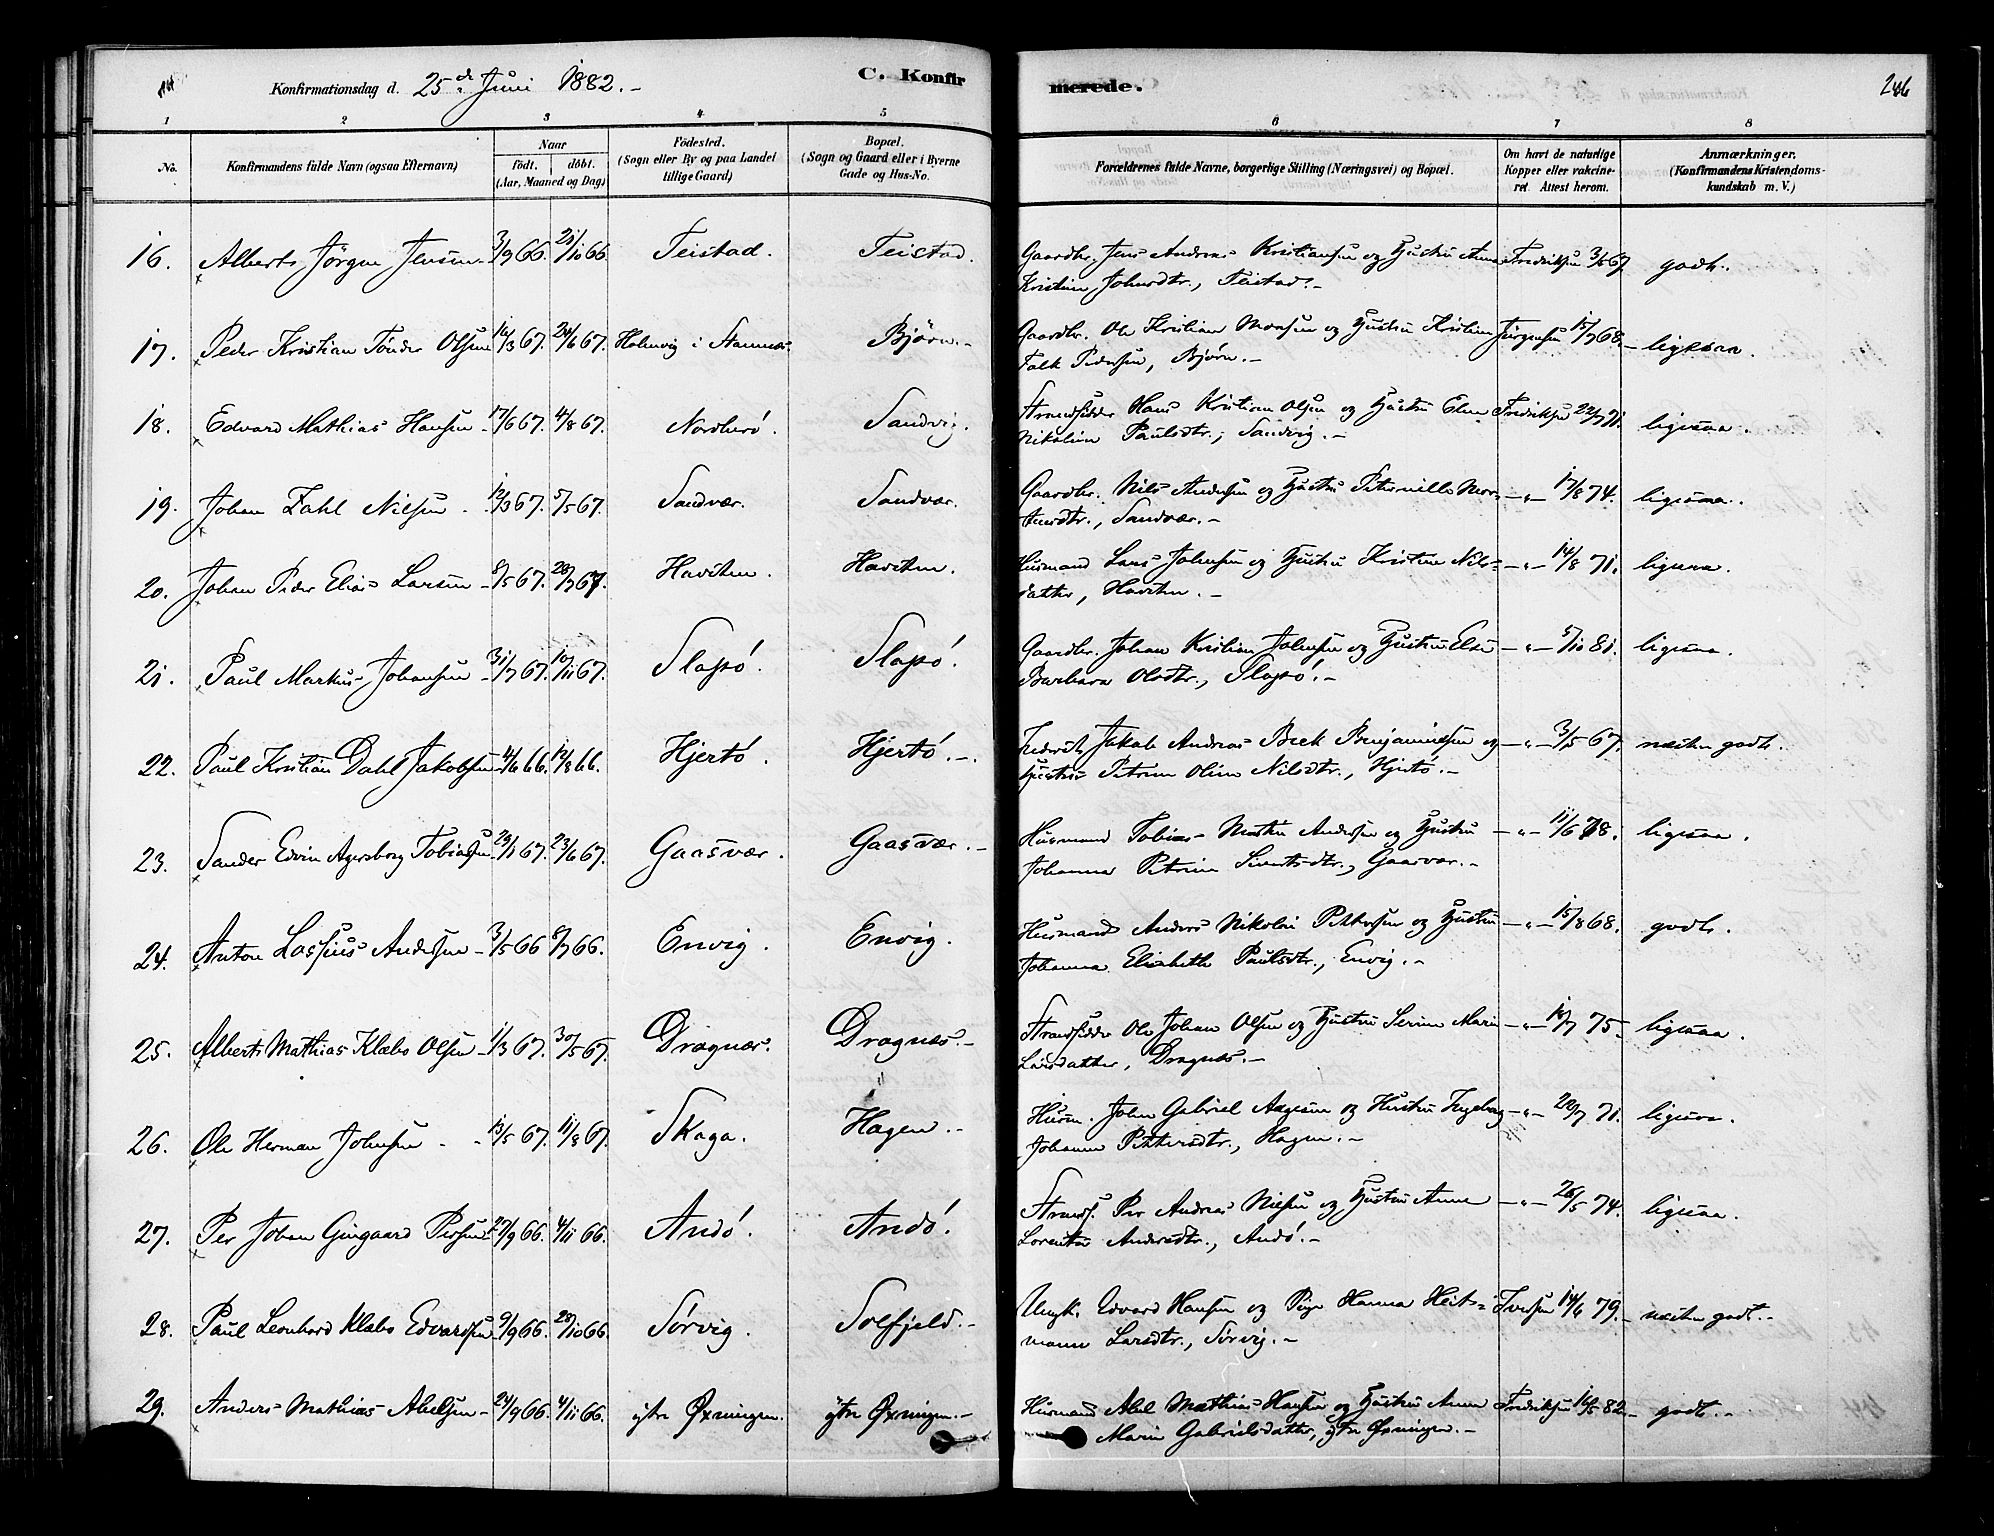 Konfirmationsdag d. 25de Juni 1882. –
C. Konfir
merede.
246
1 2 3 4 5 6 7 8
No.
Konfirmandens fulde Navn (ogsaa Efternavn)
Naar
født. døbt.
(Aar, Maaned og Dag)
Födested.
(Sogn eller By og paa Landet
tillige Gaard)
Bopæl.
(Sogn og Gaard eller i Byerne
Gade og Hus-No.
Forældrenes fulde Navne, borgerlige Stilling (Næringsvei) og Bopæl.
Om havt de naturlige
Kopper eller vakcine-
ret Attest herom.
Anmærkninger.
(Konfirmandens Kristendoms-
kundskab m. V.)
16. Alberts Jörgen Jensen 3/9 66. 21/10 66 Teistad. Teistad. Gaardbr. Jens Andreas Kristiansen og Hustru Anne Fredriksen 3/5 67 godt.
Kristine Johnsdtr., Teistad. –
17. Peder Kristian Tönder Olsen 16/3 67. 24/6 67. Holmvig i Stamnes. Björn. – Gaardbr. Ole Kristian Monsen og Hustru Kristine Jürgensen 15/7 68. – ligesaa.
Falk Pedersen, Bjørn. –
18. Edvard Mathias Hansen 17/6 67. 4/8 67. Nordherö. Sandvig. Strandsidder Hans Kristian Olsen og Hustru Elen Fredriksen 22/7 71. ligesaa.
Nikoline Paulsdtr., Sandvig. –
19. Johan Zahl Nilsen. 12/3 67. 5/5 67. Sandvær. Sandvær. Gaardbr. Nils Andersen og Hustru Petternille –„– 17/8 74. ligesaa.
Sandvær. –
20. Johan Peder Elias Larsen 8/5 67. 28/7 67. Havsten. Havsten. Husmand Lars Johnsen og Hustru Kristine Nils= –„– 14/8 71. ligesaa.
datter, Havsten. –
21. Paul Markus Johansen 31/7 67. 10/11 67. Slapö. Slapö. Gaardbr. Johan Kristian Johnsen og Hustru Else –„– 5/10 81. ligesaa.
Barbara Olsdtr., Slapö. –
22. Paul Kristian Dahl Jakobsen 4/6 66. 12/8 66. Hjertö. Hjertö. – Jakob Andreas Beck Benjaminsen og –„– 3/5 67. næsten godt.
Hustru Petrine Oline Nilsdtr., Hjertö. –
23. Sander Edvin Agersborg Tobiassen 29/1 67. 23/6 67. Gaasvær. Gaasvær. – Husmand Tobias Martin Andersen og Hustru –„– 11/6 78. ligesaa.
Johanna Petrine Sivertsdtr., Gaasvær. –
24. Anton Lassius Andersen 3/5 66 8/7 66. Envig. Envig. Husmand Anders Nikolai Pettersen og Hustru –„– 15/8 68. godt.
Johanna Elisabeth Paulsdtr., Envig. –
25. Alberts Mathias Klæbo Olsen 1/3 67. 30/5 67. Dragnæs. Dragnæs. – Strandsidder Ole Johan Olsen og Hustru Serine Marie –„– 18/7 75 – ligesaa.
Larsdatter, Dragnæs. –
26. Ole Herman Johnsen. 13/5 67. 11/8 67. Skaga. Hagen. – Husm. John Gabriel Aagesen og Hustru Ingeborg –„– 22/7 71. ligesaa.
Johanne Pettersdtr., Hagen. –
27. Per Johan Gingaard Persen 27/9 66. 4/11 66. Andö. Andö. Strands. Per Andreas Nilsen og Hustru Anne –„– 26/5 74. ligesaa.
Lorentse Andersdtr., Andö. –
28. Paul Leonhard Klæbo Edvardsen 9/9 66. 28/10 66. Sörvig. Solfjeld. – Ungk. Edvard Hansen og Pige Hanna Heit= Iversen 14/6 79. – næsten godt. –
mann Larsdtr., Sörvig. –
29. Anders Mathias Abelsen 24/9 66. 4/11 66. ytre Øxningen. ytre Øxningen. – Husmand Abel Mathias Hansen og Hustru Anne Fredriksen 16/5 82 – godt. –
Marie Gabrielsdatter, ytre Øxningen. –